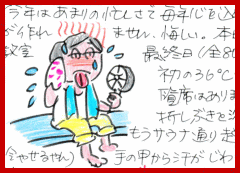 今年はあまりの忙しさで毎年心を込
が作れ ません。悔しい。本日
教室 最終日(全80
初の36℃
隣席はありま
折しぶきを浴
もうサウナ通り越
(今やせるやん) 手の甲から汗がじわ